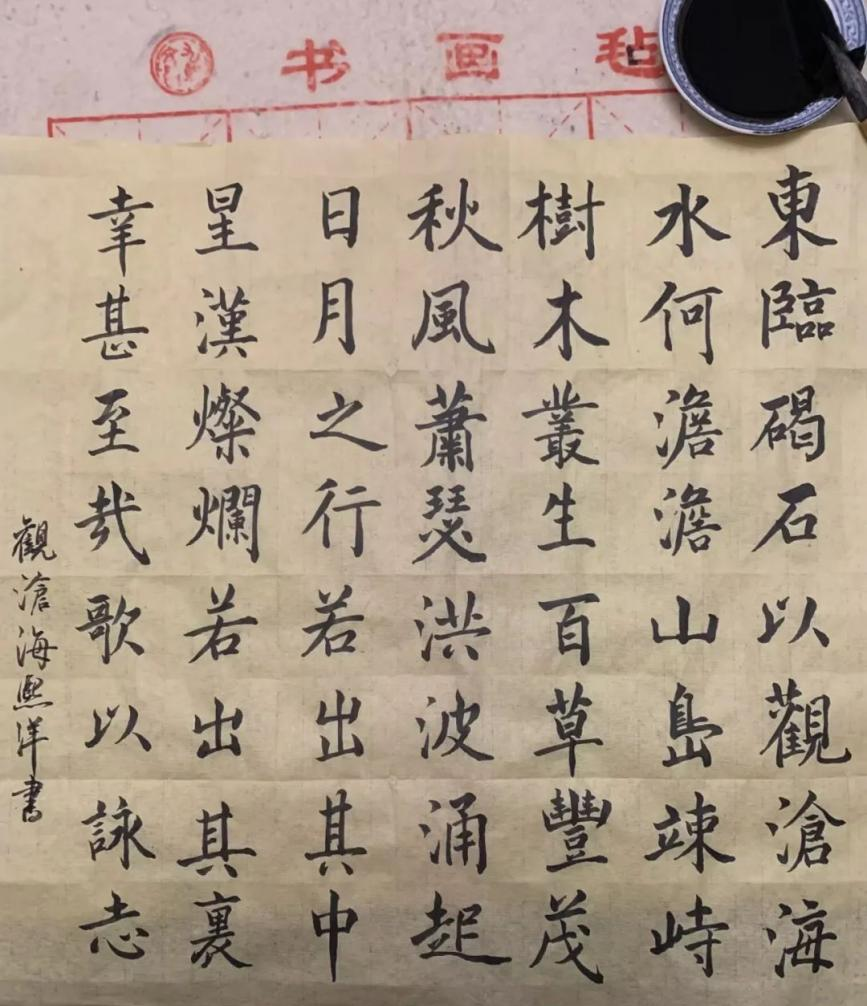 书画毡
東臨碣石以觀滄海
水何澹澹山島竦峙
樹木叢生百草豐茂
秋風蕭瑟洪波涌起
日月之行若出其中
星漢燦爛若出其裏
幸甚至哉歌以詠志
觀滄海熙洋書